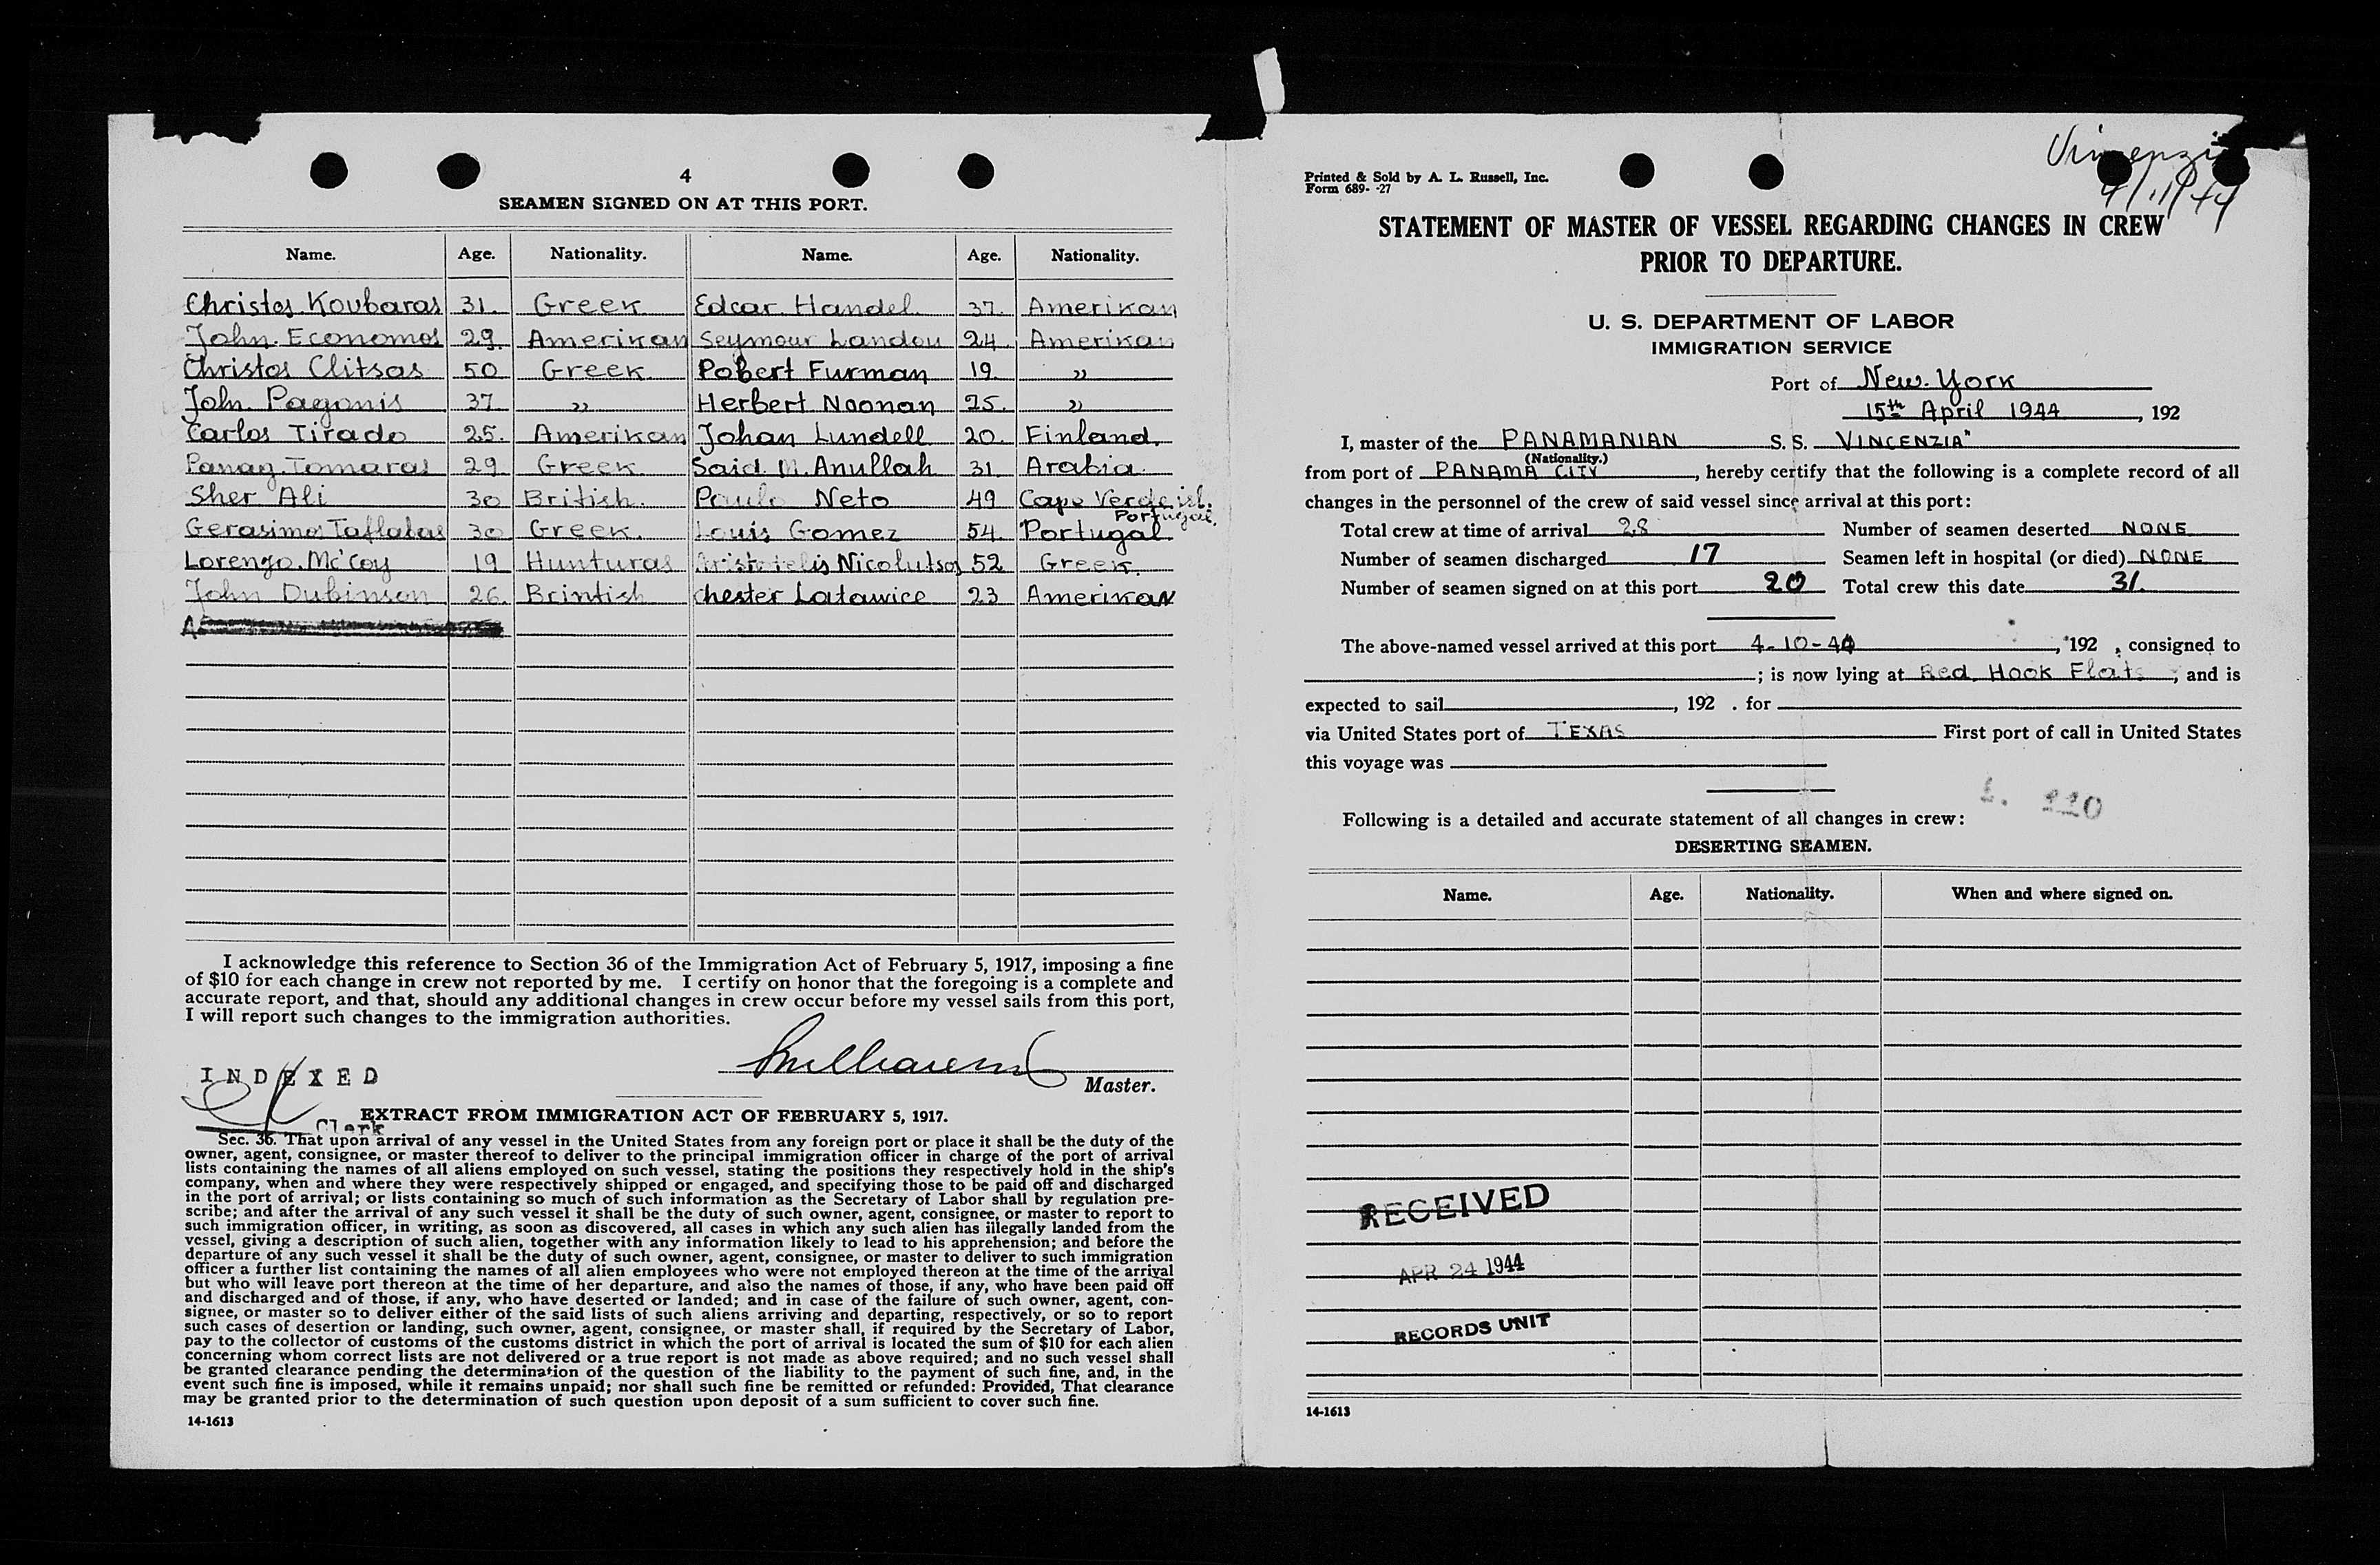 4
SEAMEN SIGNED ON AT THIS PORT.
Name. Age. Nationality. Name. Age. Nationality.
Christos Koubaras 31. Greek Edcar Handel 37. Amerikan
John. Economos 29. Amerikan Seymour Landou 24 Amerikan
Christos Clitsas 50 Greek Robert Furman 19. "
John. Pagonis 37 " Herbert Noonan 25. "
Carlos Tirado 25. Amerikan Johan Lundell 20. Finland.
Panag. Tomaras 29 Greek Said. M. Anullah 31 Arabia.
Sher Ali 30 British. Paulo Neto 49 Cape Verde isl.
Portugal.
Gerasimos Taflatas 30 Greek. Louis Gomez 54. Portugal.
Lorenzo. Mc'Coy 19 Hunturas Aristotelis Nicolutsos 52 Greek.
John Dubinson 26. Brintish Chester Latawice 23 Amerikan
I acknowledge this reference to Section 36 of the Immigration Act of February 5, 1917, imposing a fine
of $10 for each change in crew not reported by me. I certify on honor that the foregoing is a complete and
accurate report, and that, should any additional changes in crew occur before my vessel sails from this port,
I will report such changes to the immigration authorities.
INDEXED
Master.
Clerk
EXTRACT FROM IMMIGRATION ACT OF FEBRUARY 5, 1917.
Sec. 36. That upon arrival of any vessel in the United States from any foreign port or place it shall be the duty of the
owner, agent, consignee, or master thereof to deliver to the principal immigration officer in charge of the port of arrival
lists containing the names of all aliens employed on such vessel, stating the positions they respectively hold in the ship's
company, when and where they were respectively shipped or engaged, and specifying those to be paid off and discharged
in the port of arrival; or lists containing so much of such information as the Secretary of Labor shall by regulation pre-
scribe; and after the arrival of any such vessel it shall be the duty of such owner, agent, consignee, or master to report to
such immigration officer, in writing, as soon as discovered, all cases in which any such alien has illegally landed from the
vessel, giving a description of such alien, together with any information likely to lead to his apprehension; and before the
departure of any such vessel it shall be the duty of such owner, agent, consignee, or master to deliver to such immigration
officer a further list containing the names of all alien employees who were not employed thereon at the time of the arrival
but who will leave port thereon at the time of her departure, and also the names of those, if any, who have been paid off
and discharged and of those, if any, who have deserted or landed; and in case of the failure of such owner, agent, con-
signee, or master so to deliver either of the said lists of such aliens arriving and departing, respectively, or so to report
such cases of desertion or landing, such owner, agent, consignee, or master shall, if required by the Secretary of Labor,
pay to the collector of customs of the customs district in which the port of arrival is located the sum of $10 for each alien
concerning whom correct lists are not delivered or a true report is not made as above required; and no such vessel shall
be granted clearance pending the determination of the question of the liability to the payment of such fine, and, in the
event such fine is imposed, while it remains unpaid; nor shall such fine be remitted or refunded: Provided, That clearance
may be granted prior to the determination of such question upon deposit of a sum sufficient to cover such fine.
14-1613
Vincenzia
4/11/44
Printed & Sold by A. L. Russell, Inc.
Form 689- -27
STATEMENT OF MASTER OF VESSEL REGARDING CHANGES IN CREW
PRIOR TO DEPARTURE.
U. S. DEPARTMENT OF LABOR
IMMIGRATION SERVICE
Port of New. York
15th April 1944, 192
I, master of the PANAMANIAN S. S. VINCENZIA"
(Nationality.)
from port of PANAMA CITY, hereby certify that the following is a complete record of all
changes in the personnel of the crew of said vessel since arrival at this port:
Total crew at time of arrival 28 Number of seamen deserted NONE
Number of seamen discharged 17 Seamen left in hospital (or died) NONE
Number of seamen signed on at this port 20 Total crew this date 31.
The above-named vessel arrived at this port 4-10-44, 192 , consigned to
; is now lying at Red. Hook Flats, and is
expected to sail, 192 . for
via United States port of TEXAS First port of call in United States
this voyage was
Following is a detailed and accurate statement of all changes in crew:
DESERTING SEAMEN.
Name. Age. Nationality. When and where signed on.
RECEIVED
APR 24 1944
RECORDS UNIT
14-1613